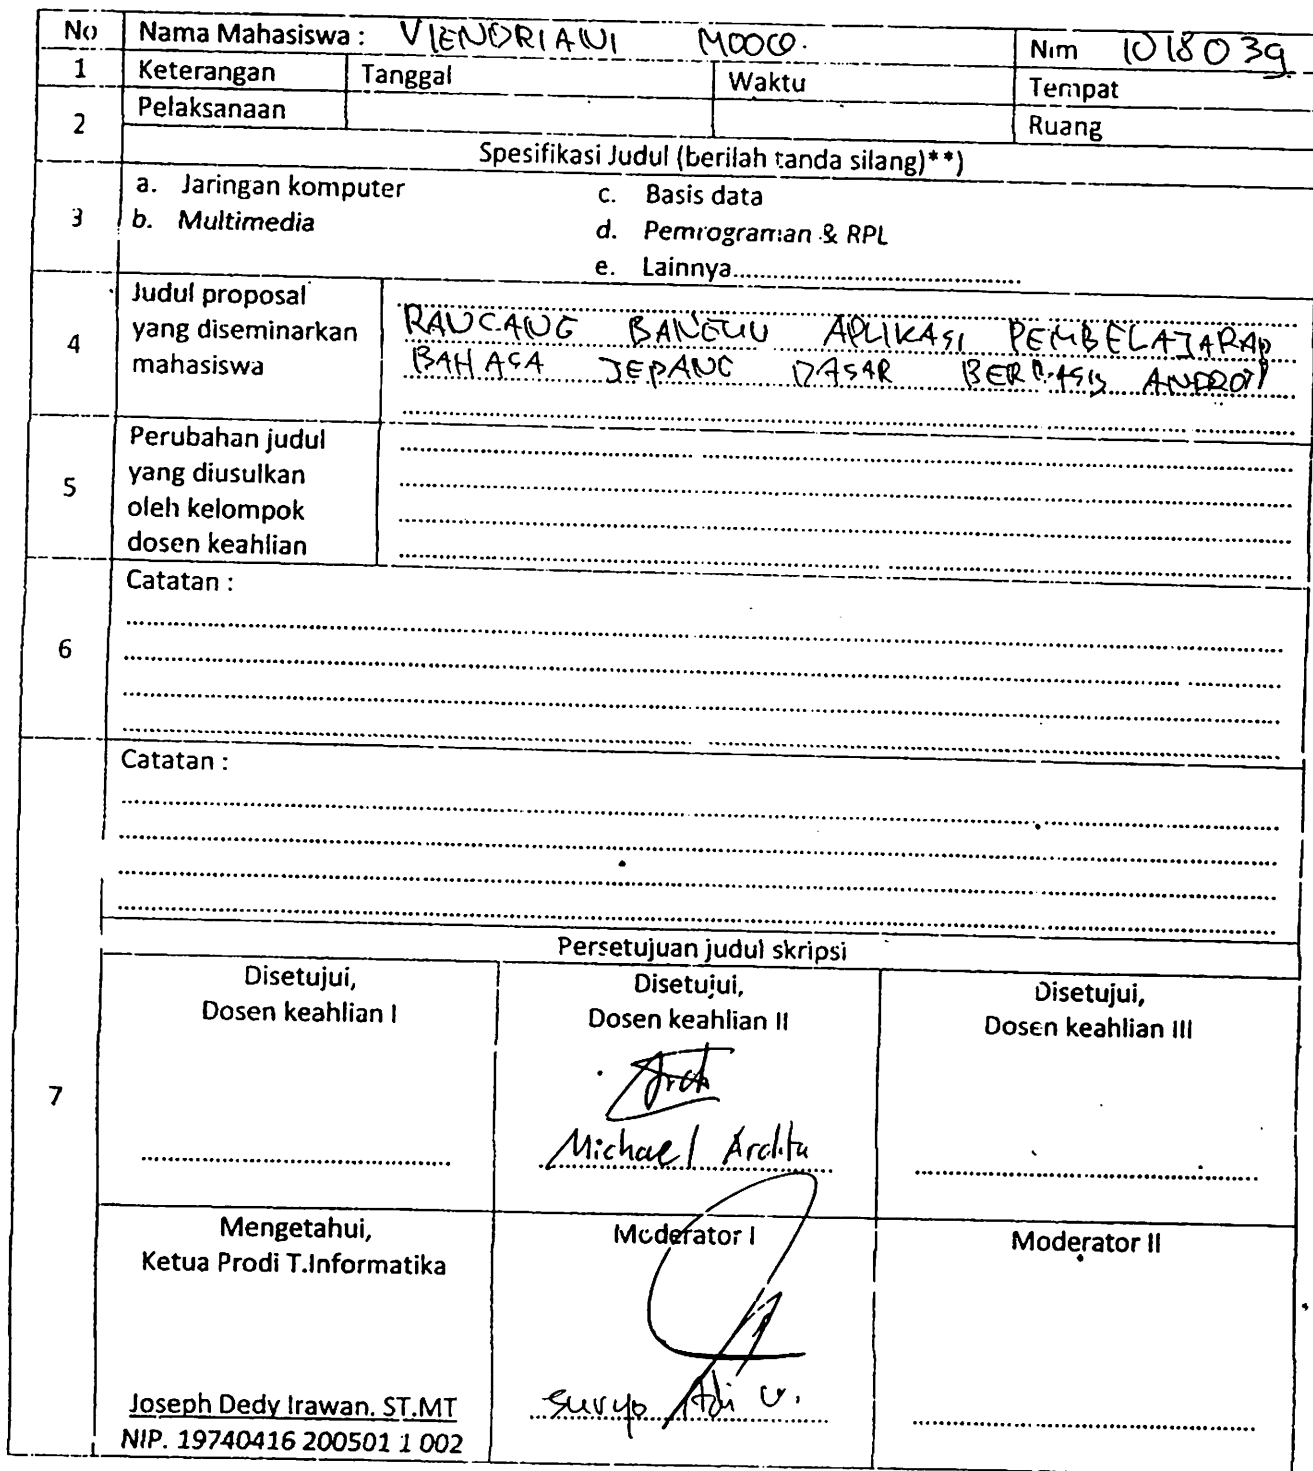 No Nama Mahasiswa : VIENDRIANI MOOCO. Nim 1018039
1 Keterangan Tanggal Waktu Tempat
2 Pelaksanaan Ruang
Spesifikasi Judul (berilah tanda silang)**)
3
a. Jaringan komputer c. Basis data
b. Multimedia d. Pemrograman & RPL
e. Lainnya
4
Judul proposal
yang diseminarkan
mahasiswa
RANCANG BANGUN APLIKASI PEMBELAJARAN
BAHASA JEPANG DASAR BERBASIS ANDROID
5
Perubahan judul
yang diusulkan
oleh kelompok
dosen keahlian
6
Catatan :
Catatan :
Persetujuan judul skripsi
7
Disetujui,
Dosen keahlian I
Disetujui,
Dosen keahlian II
Michael Ardita
Disetujui,
Dosen keahlian III
Mengetahui,
Ketua Prodi T.Informatika
Joseph Dedy Irawan. ST.MT
NIP. 19740416 200501 1 002
Moderator I
Suryo Adi W.
Moderator II